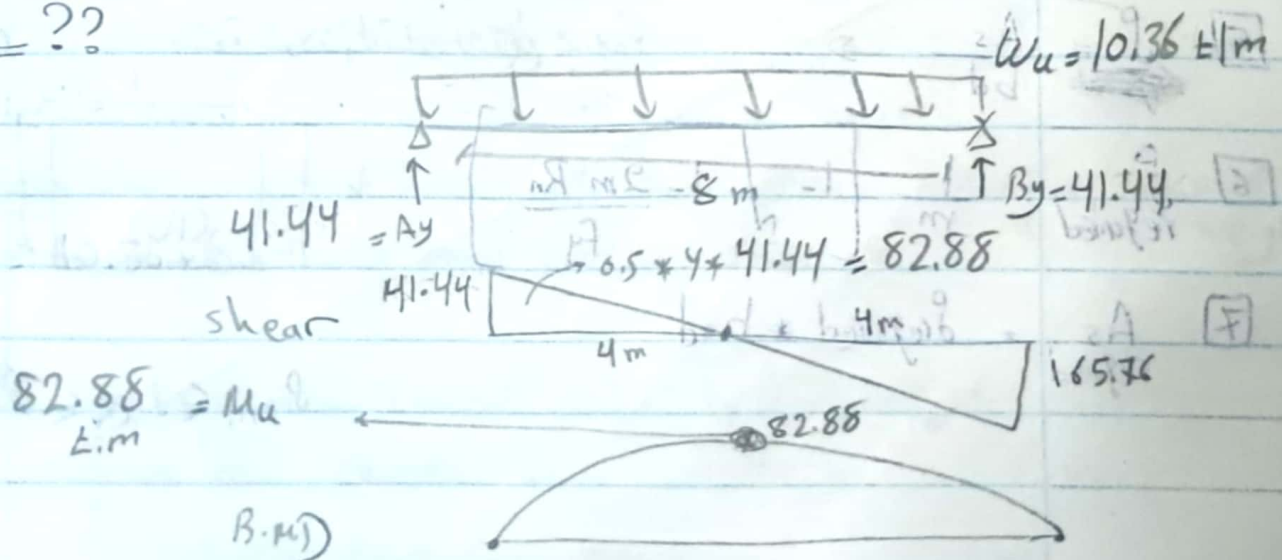 = ??
Wu = 10.36 t/m
8 m
41.44 = Ay
By = 41.44
0.5 * 4 * 41.44 = 82.88
41.44
shear
4m
4m
165.76
82.88 = Mu
t.m
82.88
B.M.D